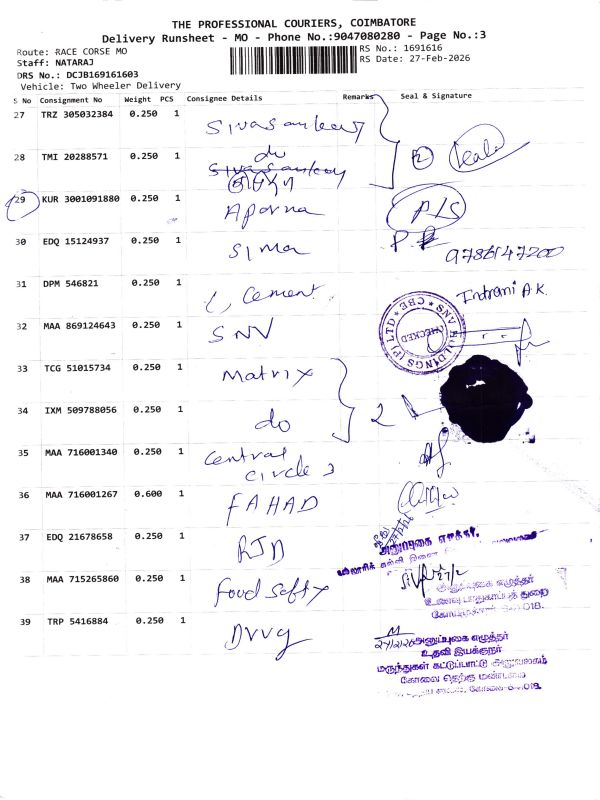 THE PROFESSIONAL COURIERS, COIMBATORE
Delivery Runsheet - MO - Phone No.:9047080280 - Page No.:3
Route: RACE CORSE MO
RS No.: 1691616
Staff: NATARAJ
RS Date: 27-Feb-2026
DRS No.: DCJB169161603
Vehicle: Two Wheeler Delivery
S No Consignment No Weight PCS Consignee Details Remarks Seal & Signature
27 TRZ 305032384 0.250 1 Sivasankar
28 TMI 20288571 0.250 1 do
2
29 KUR 3001091880 0.250 1 Aparna
30 EDQ 15124937 0.250 1 Sima
9786147200
31 DPM 546821 0.250 1 Cement
Indrani A.K.
32 MAA 869124643 0.250 1 SNV
SNV HOLDINGS (P) LTD CBE
CHECKED
33 TCG 51015734 0.250 1 Matrix
34 IXM 509788056 0.250 1 do 2
35 MAA 716001340 0.250 1 Central
circle
36 MAA 716001267 0.600 1 FAHAD
37 EDQ 21678658 0.250 1 RJD
38 MAA 715265860 0.250 1 Food Safty
அனுப்புகை எழுத்தர்
உணவு பாதுகாப்புத் துறை
39 TRP 5416884 0.250 1
அனுப்புகை எழுத்தர்
உதவி இயக்குநர்
மருந்துகள் கட்டுப்பாட்டு அலுவலகம்
கோவை தெற்கு மண்டலம்